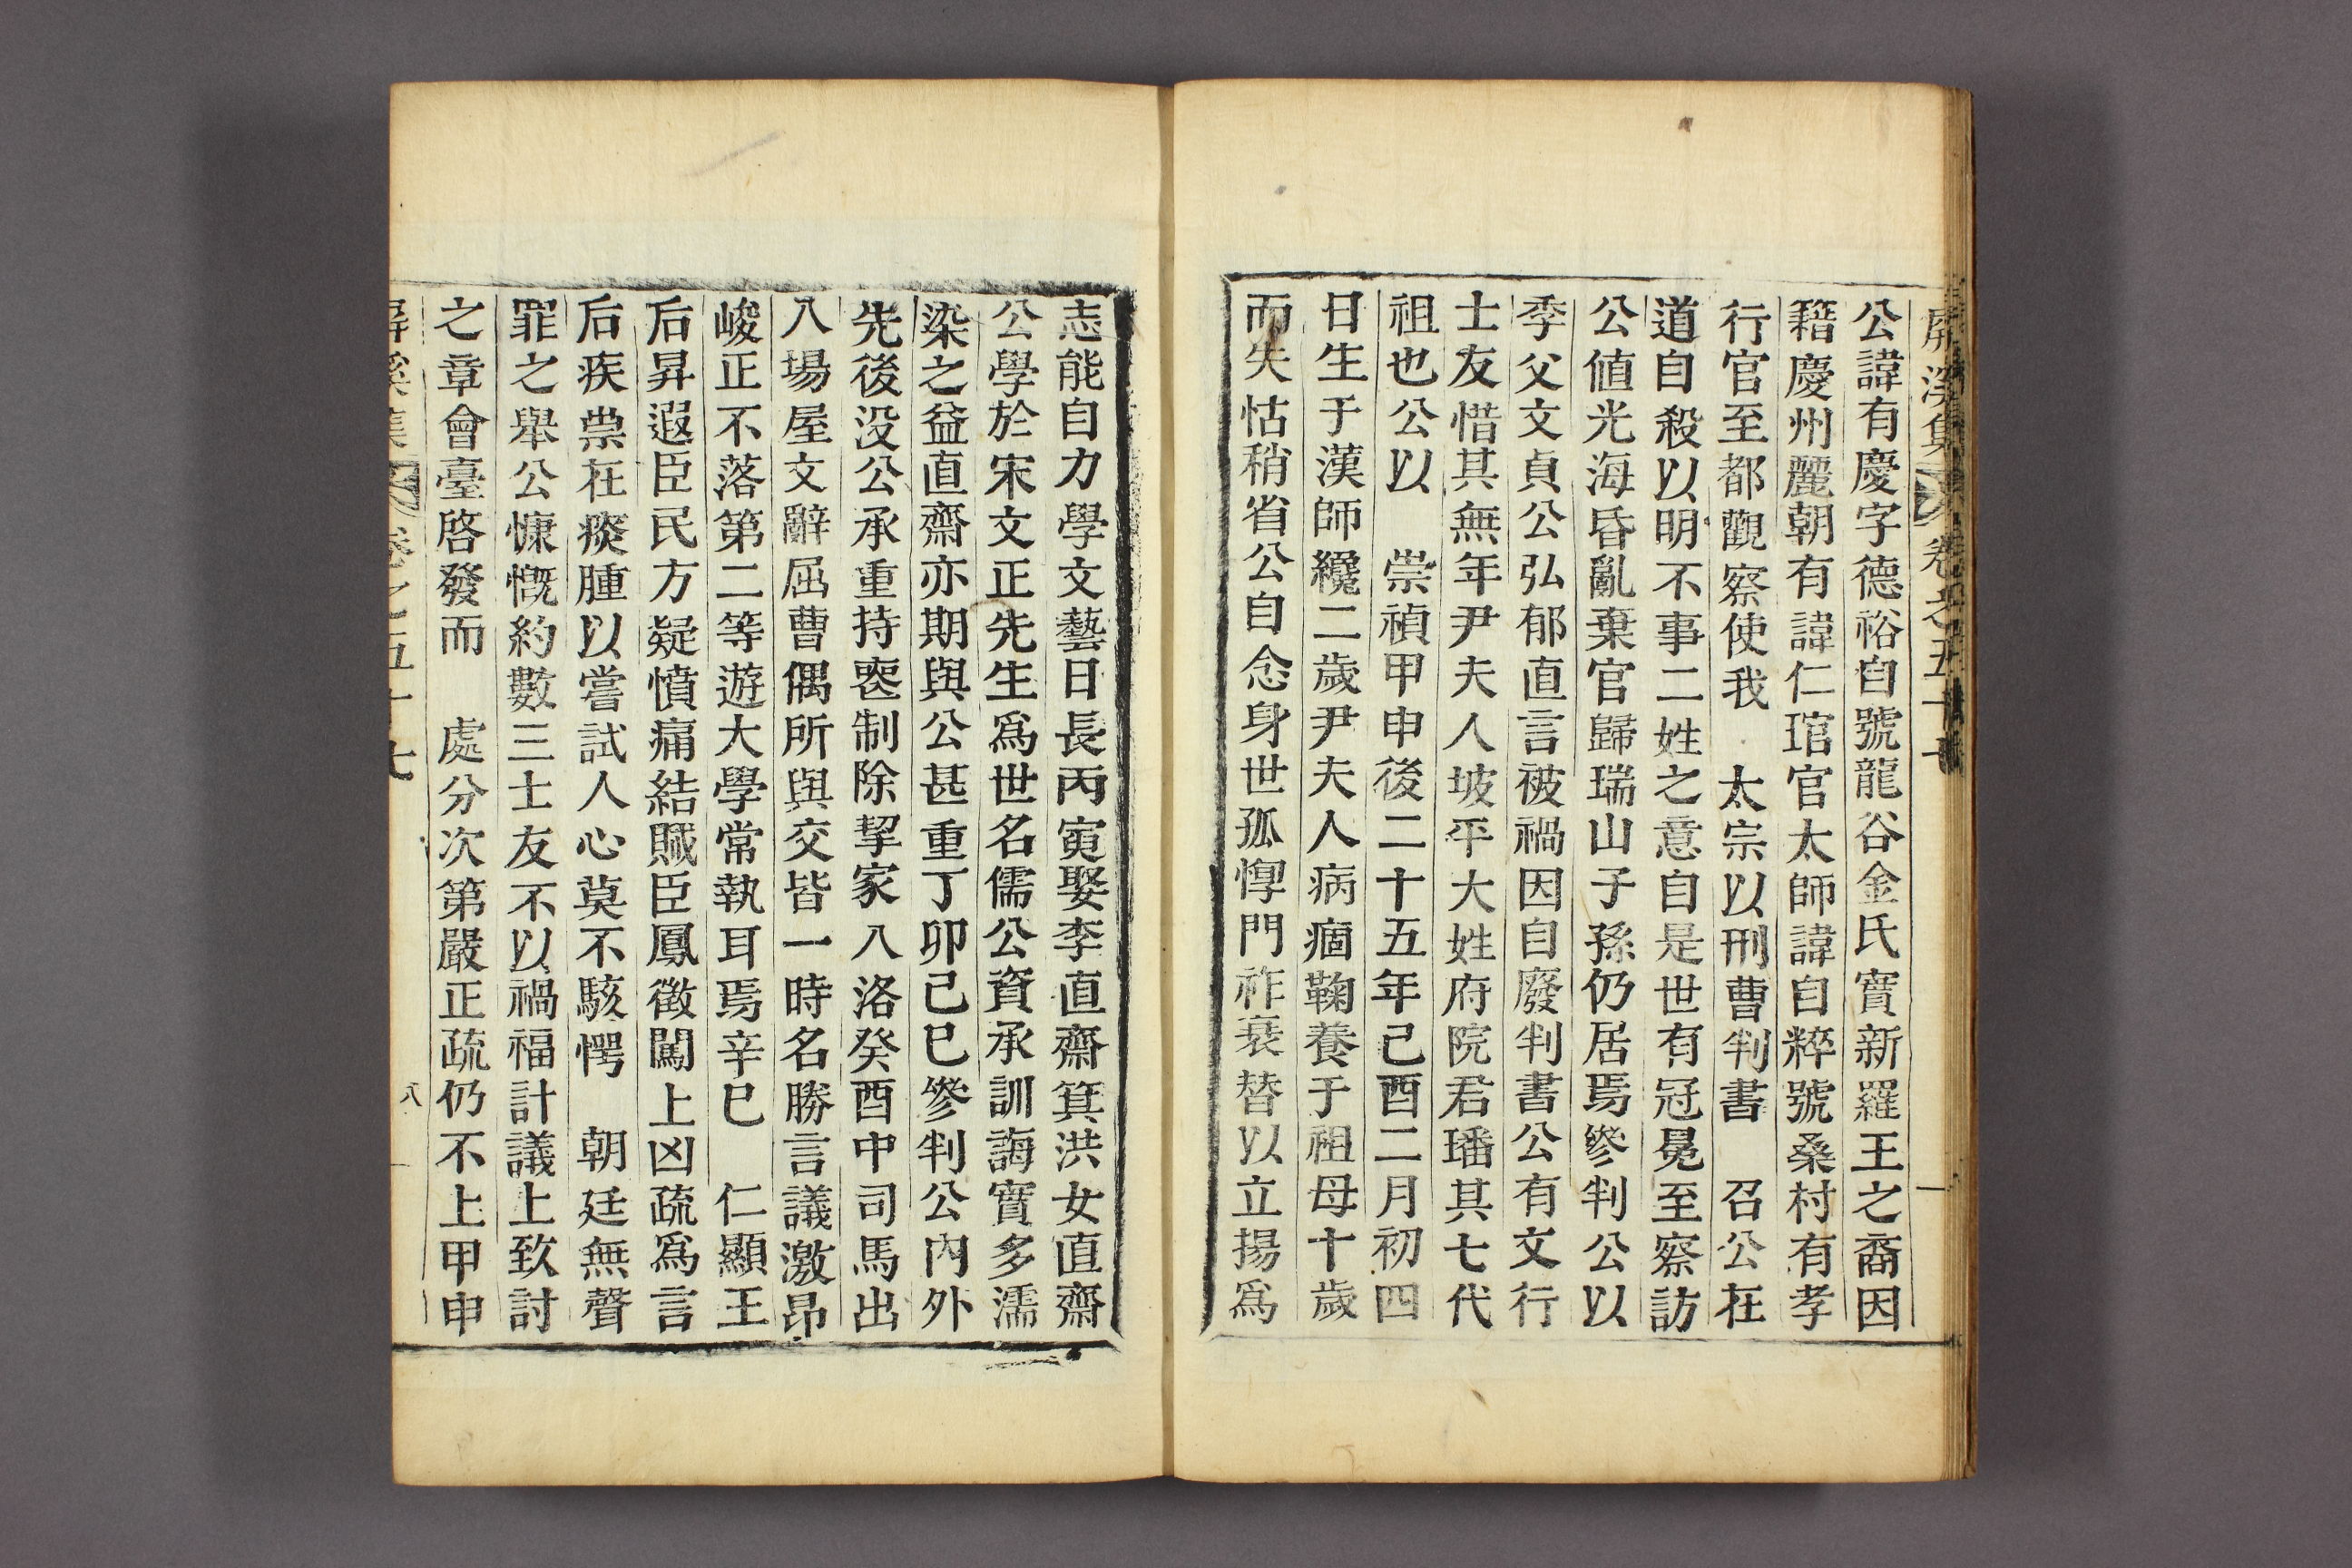 屛溪集 卷之五十
公諱有慶字德裕自號龍谷金氏實新羅王之裔因
籍慶州麗朝有諱仁琯官太師諱自粹號桑村有孝
行官至都觀察使我 太宗以刑曹判書 召公在
道自殺以明不事二姓之意自是世有冠冕至察訪
公値光海昏亂棄官歸瑞山子孫仍居焉參判公以
季父文貞公弘郁直言被禍因自廢判書公有文行
士友惜其無年尹夫人坡平大姓府院君璠其七代
祖也公以 崇禎甲申後二十五年己酉二月初四
日生于漢師纔二歲尹夫人病痼鞠養于祖母十歲
而失怙稍省公自念身世孤惸門祚衰替以立揚爲
志能自力學文藝日長丙寅娶李直齋箕洪女直齋
公學於宋文正先生爲世名儒公資承訓誨實多濡
染之益直齋亦期與公甚重丁卯己巳參判公內外
先後没公承重持喪制除挈家入洛癸酉中司馬出
入場屋文辭屈曹偶所與交皆一時名勝言議激昂
峻正不落第二等遊大學常執耳焉辛巳 仁顯王
后昇遐臣民方疑憤痛結賊臣鳳徵闖上凶疏爲言
后疾祟在瘀腫以嘗試人心莫不駭愕 朝廷無聲
罪之舉公慷慨約數三士友不以禍福計議上致討
之章會臺啓發而 處分次第嚴正疏仍不上甲申
屛溪集 卷之五十七 八